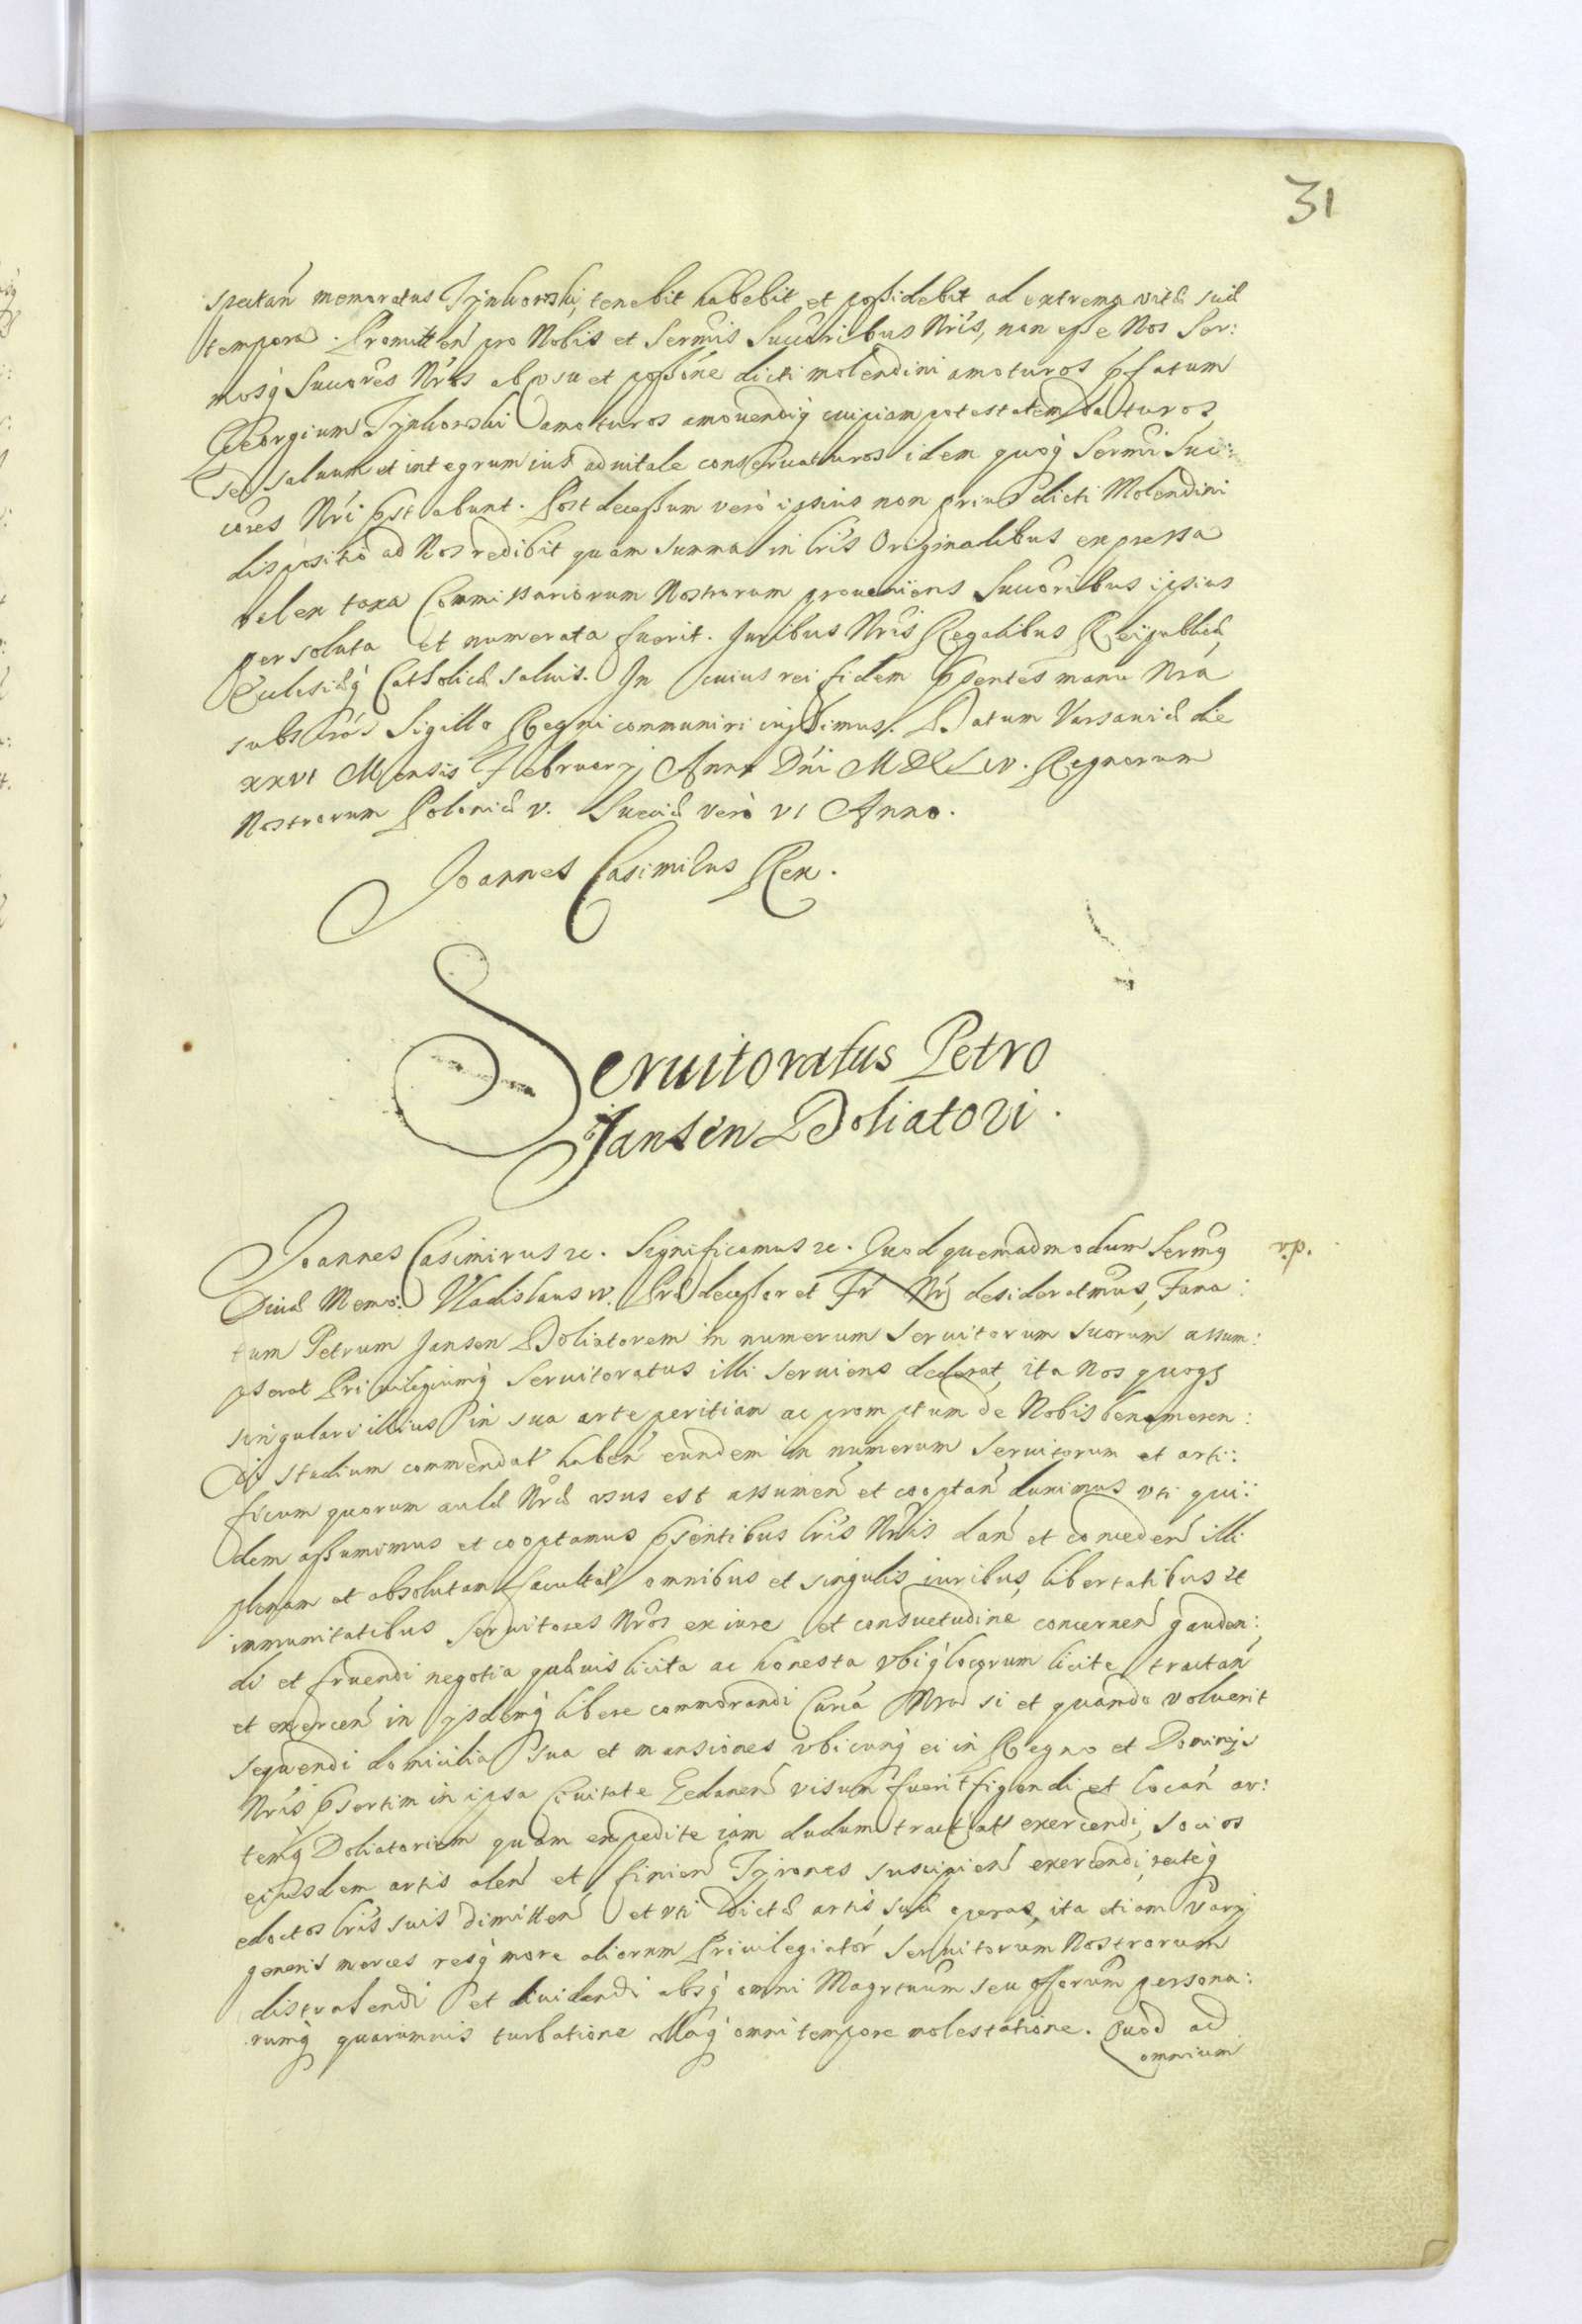 31
spectań memoratus Tynkowski, tenebit habebit et possidebit ad extrema vitæ suæ
tempora. Promitteń pro Nobis et Sermis Succoribus Nris, non esse Nos Ser:
mosq Succores Nros ab usu et possone dicti molendini amoturos pfatum
Georgium Tynkowski amoturos amovendiq cuipiam potestatem daturos,
sed salvum et integrum ius advitale conservaturos idem quoq Sermi Suc:
cores Nri pstabunt. Post decessum verò ipsius non prius dicti Molendini
dispositio ad Nos redibit quam summa in lris Originalibus expressa
vel ex taxa Commissariorum Nostrorum proveniens Succoribus ipsius
persoluta et numerata fuerit. Juribus Nris Regalibus Reipublicæ,
Ecclesiæq Catholicæ salvis. In cuius rei fidem psentes manu Nra
subscros Sigillo Regni communiri iussimus. Datum Varsaviæ die
xxvi Mensis February Anno Dni MDCLIV. Regnorum
Nostrorum Poloniæ v. Sueciæ verò vi Anno.
Joannes Casimirus Rex.
Servitoratus Petro
Jansen Doliatori.
Joannes Casimirus etc. Significamus etc. Quod quemadmodum Sermq
v.p.
Divæ Memo: Vladislaus IV. Prædecessor et Fr Nr desideratmus, Fama:
tum Petrum Jansen Doliatorem in numerum servitorum suorum assum:
pserat Privilegiumq Servitoratus illi serviens dederat, ita Nos quoq
singulari illius in sua arte peritiam ac promptum de Nobis benemeren:
di studium commendat habeń eundem in numerum servitorum et arti:
ficum quorum aulæ Nræ usus est assumeń et cooptań duximus uti qui:
dem assumimus et cooptamus psentibus lris Nris dań et concedeń illi
plenam et absolutam facultat omnibus et singulis iuribus, libertatibus et
immunitatibus servitores Nros ex iure et consuetudine concerneń gauden:
di et fruendi negotia quævis licita ac honesta ubiq locorum licite tractań
et exerceń in ysdemq libere commorandi Curia Nra si et quando voluerit
sequendi domicilia sua et mansiones ubicunq ei in Regno et Dominys
Nris psertim in ipsa Civitate Gedaneń visum fuerit figendi et locań ar:
temq Doliatoriam quam expedite iam dudum tractat exercendi, socios
eiusdem artis aleń et Tyrones suscipień exercendi, recteq
edoctos lris suis dimitteń et uti dictæ artis suæ operas, ita etiam vary
generis merces resq more aliorum Privilegiator servitorum Nostrorum
distrahendi et dividendi absq omni Magrtuum seu offorum persona:
rumq quarumvis turbatione illaq omni tempore molestatione. Quod ad
omnium